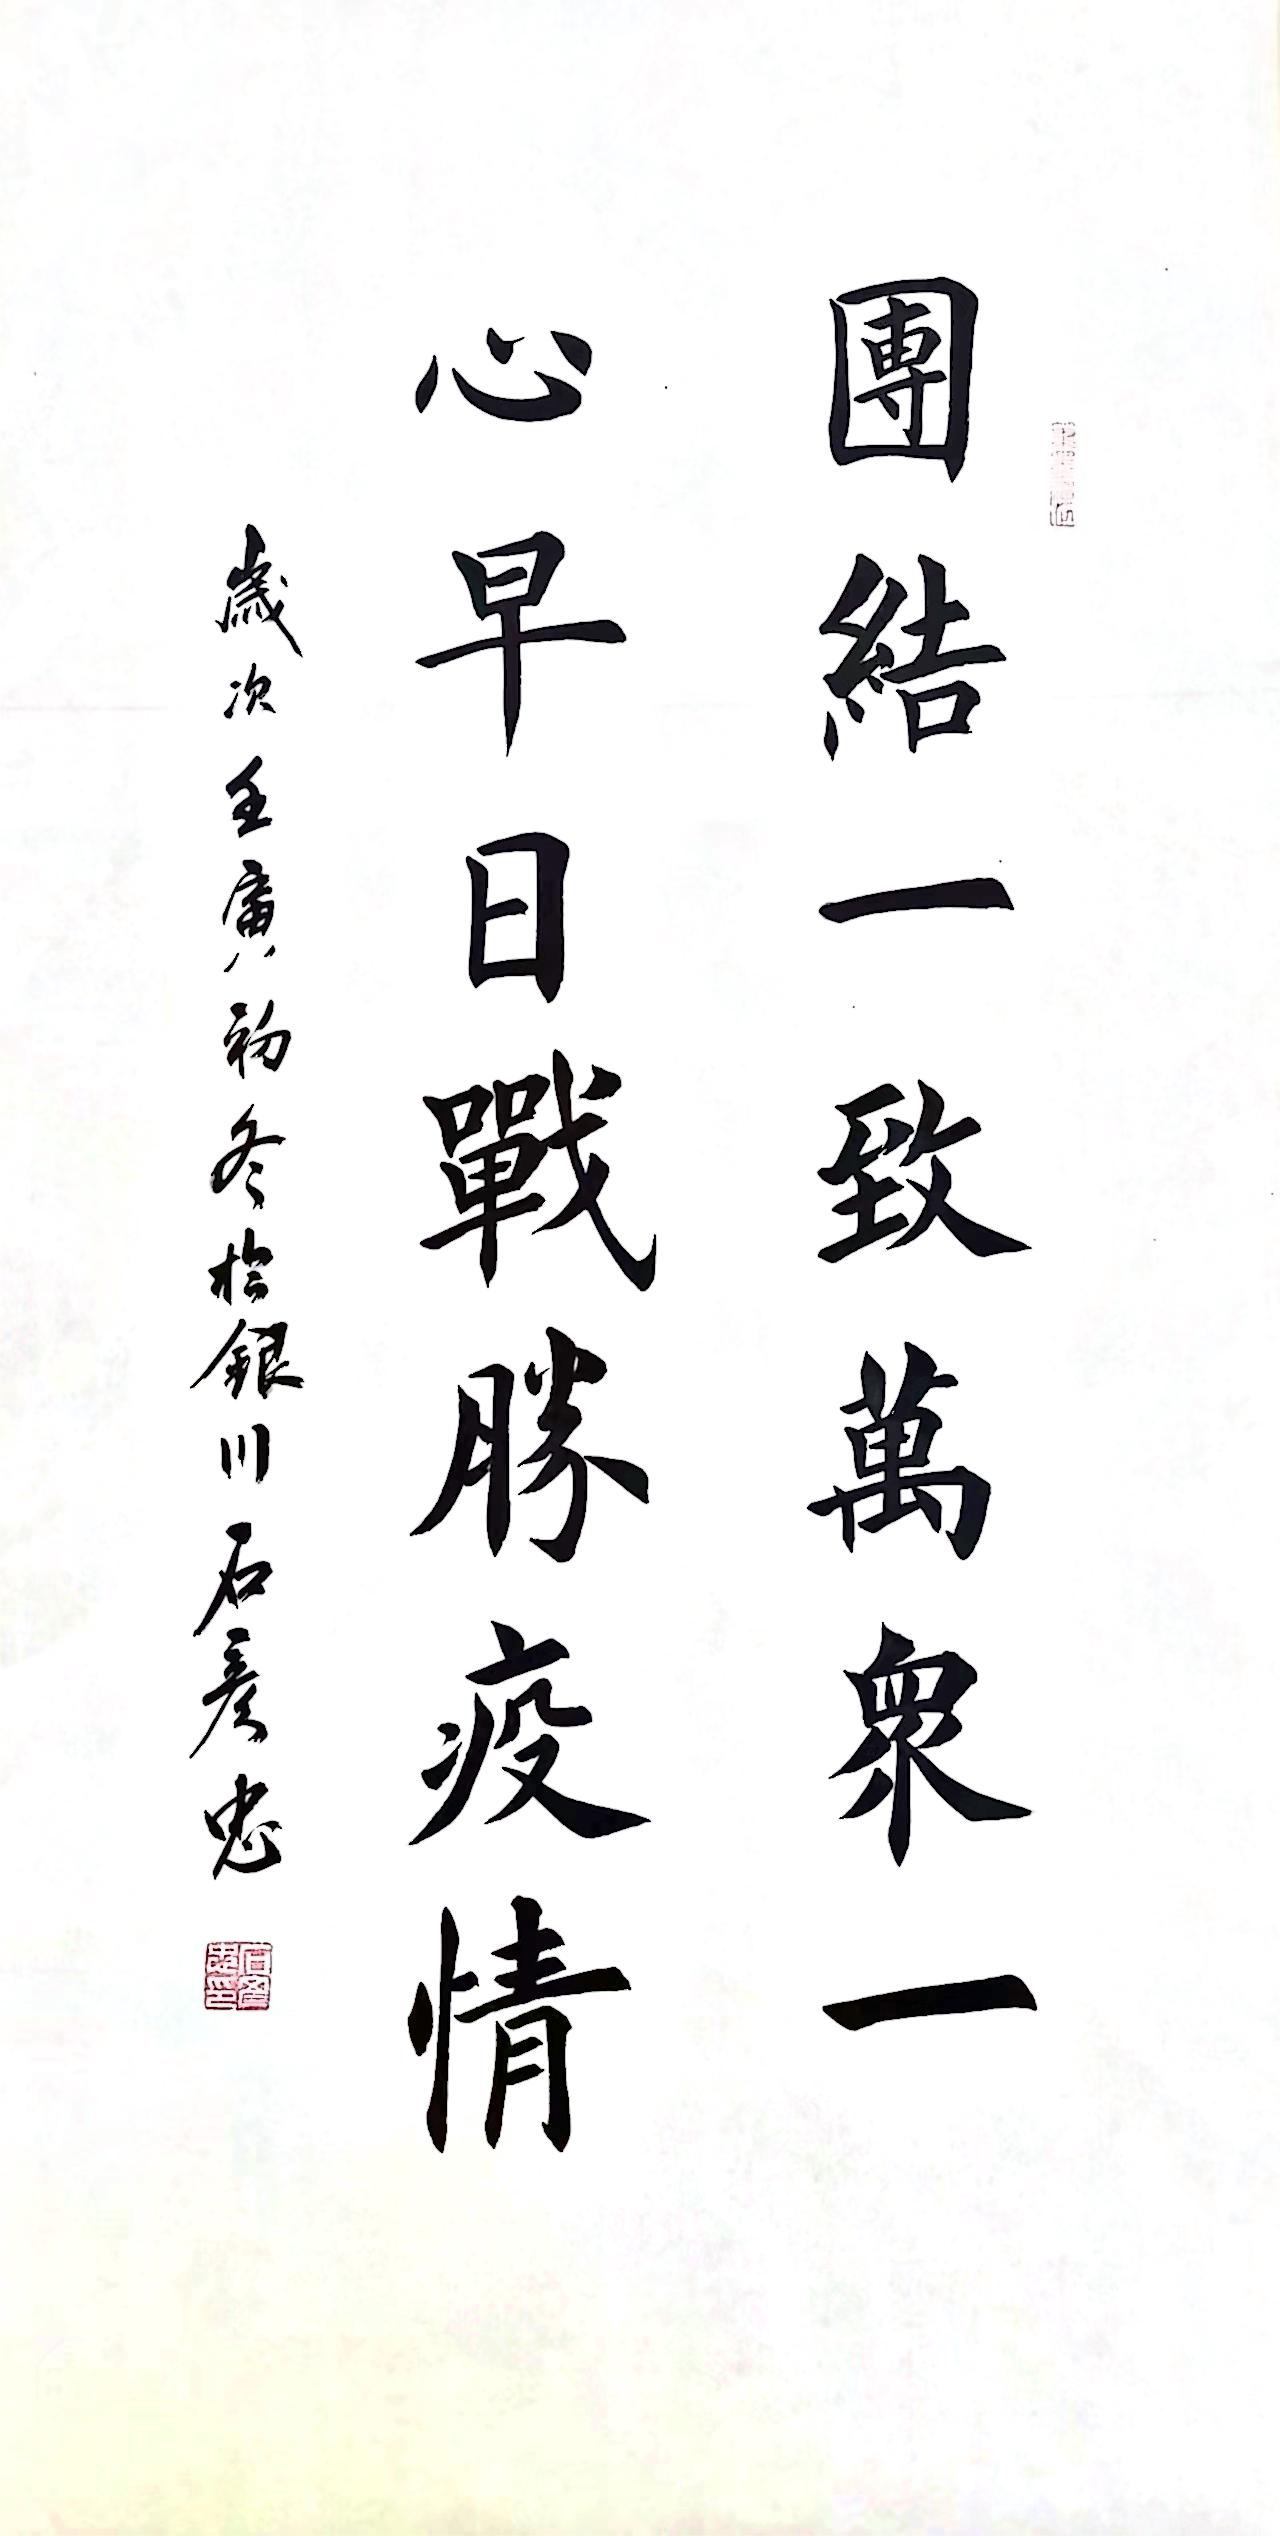 團結一致萬衆一
心早日戰勝疫情
歲次壬寅初冬於銀川石彥忠
石彥忠印